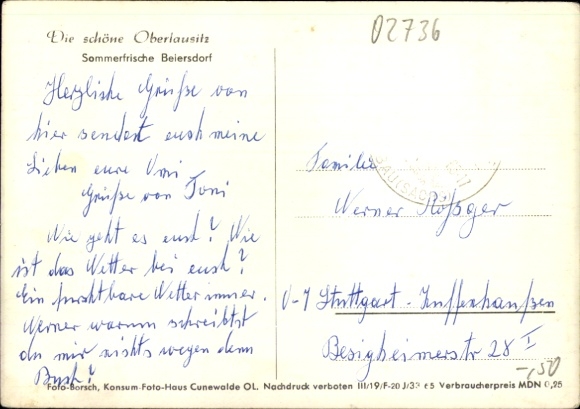 02736
Die schöne Oberlausitz
Sommerfrische Beiersdorf
Herzliche Grüße von
hier sendet euch meine
Lieben eure Omi
Grüße von Toni
Wie geht es euch? Wie
ist das Wetter bei euch?
Ein furchtbare Wetter immer.
Werner warum schreibst
du mir nichts wegen dem
Buch?
Familie
Werner Roßger
Stuttgart-Zuffenhaußen
Besigheimerstr 28 I
-,50
Foto-Borsch, Konsum-Foto-Haus Cunewalde OL. Nachdruck verboten III/19/F-20 J/33 65 Verbraucherpreis MDN 0,25